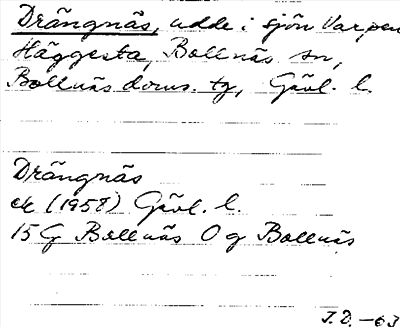 Drängnäs, udde i sjön Varpen
Häggesta, Bollnäs sn,
Bollnäs doms. tg, Gävl. l.
Drängnäs
ek (1957) Gävl. l.
15G Bollnäs Og Bollnäs
J.D. -63